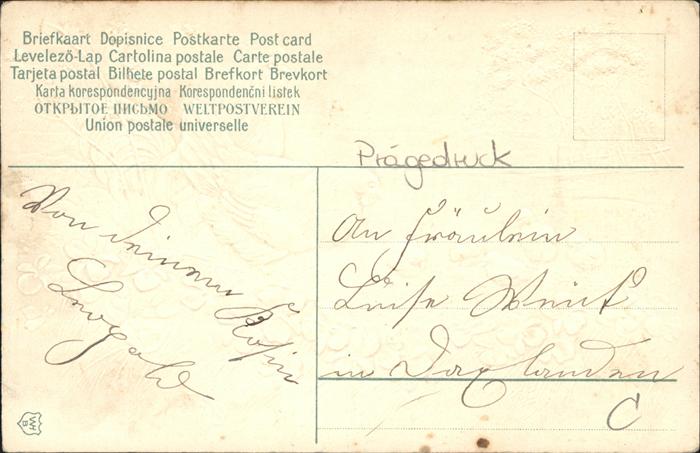 Briefkaart Dopisnice Postkarte Post card
Levelező-Lap Cartolina postale Carte postale
Tarjeta postal Bilhete postal Brefkort Brevkort
Karta korespondencyjna Korespondenčni listek
ОТКРЫТОЕ ПИСЬМО WELTPOSTVEREIN
Union postale universelle
Prägedruck
Von deinem
Leopold
An Fräulein
Luise
in Daxlanden
C